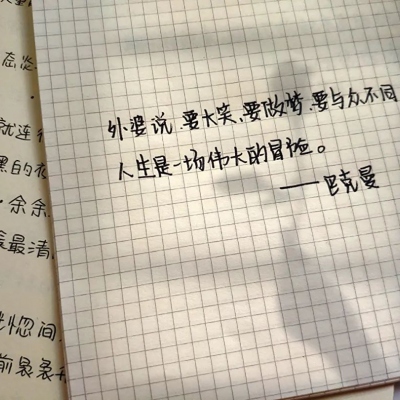 外婆说.要大笑、要做梦.要与众不同
人生是一场伟大的冒险。
——巴克曼
就连
黑的衣
·余余
最清
恍惚间
前袅袅升